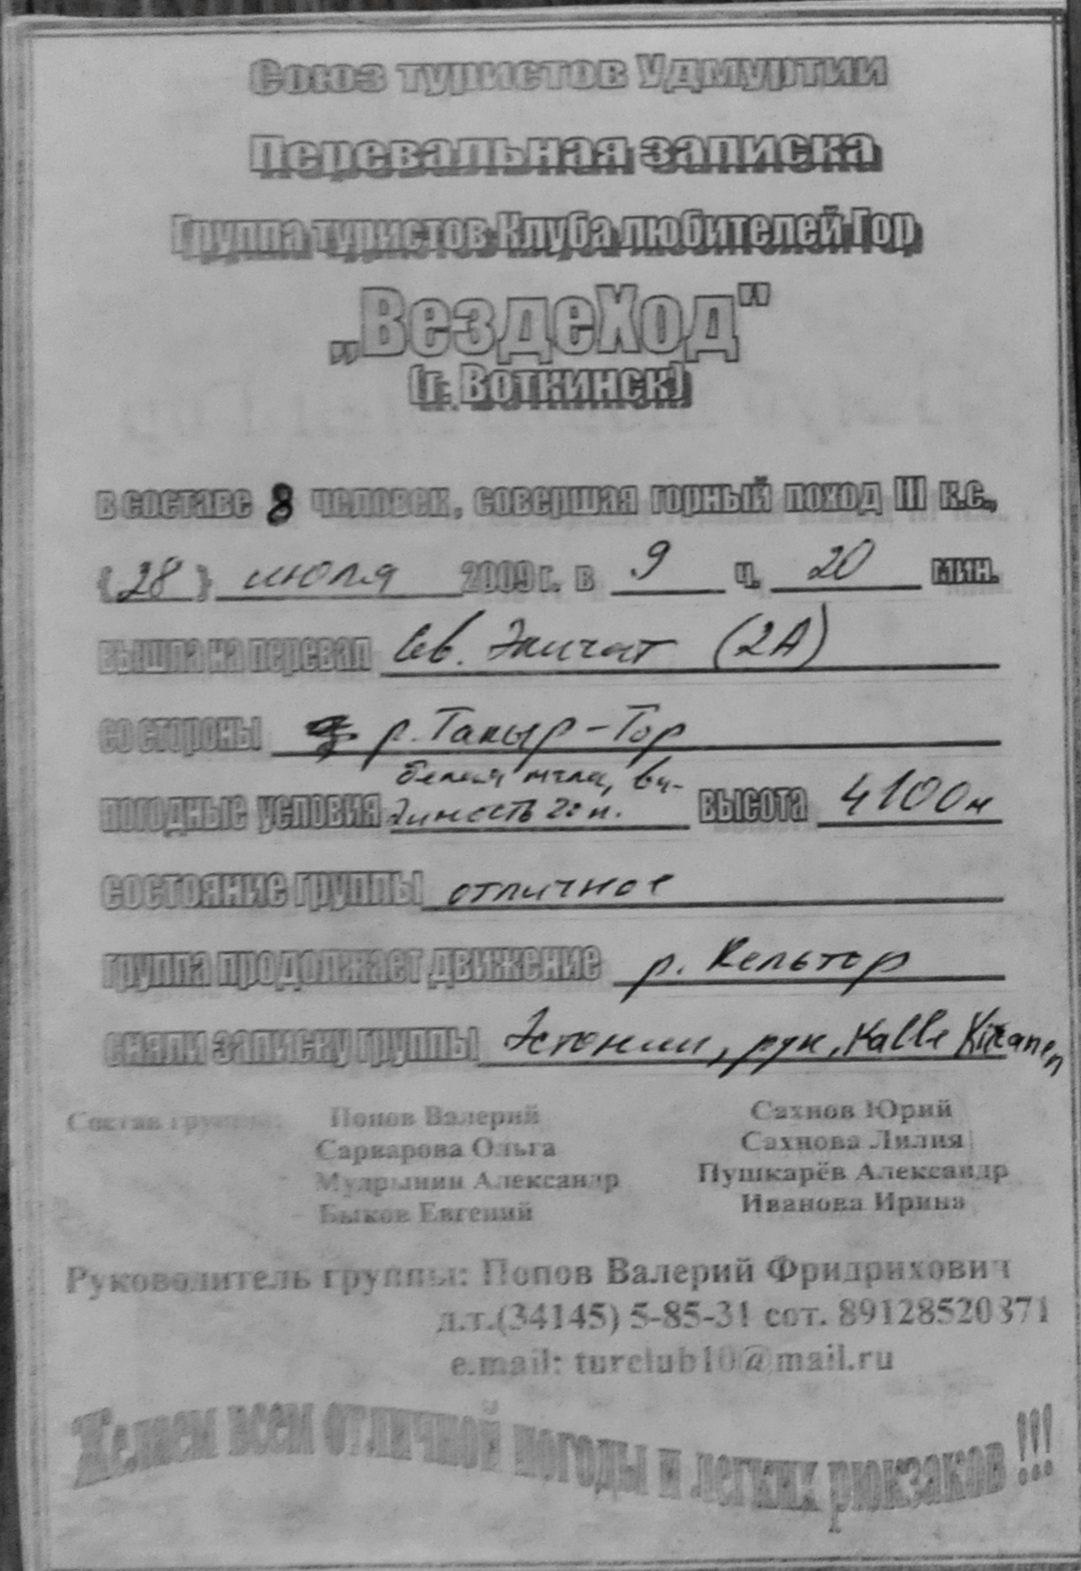 Союз туристов Удмуртии
Перевальная записка
Группа туристов Клуба любителей Гор
„ВездеХод"
(г. Воткинск)
в составе 8 человек, совершая горный поход III к.с.,
{28} июля 2009 г. в 9 ч. 20 мин.
вышла на перевал Сев. Эпичат (2А)
со стороны р. Такыр-Тор
белая мгла, ви-
погодные условия димость 20 м. высота 4100м
состояние группы отличное
группа продолжает движение р. Кельтор
сняли записку группы Эстонии, рук. Kalle Kiiranen
Состав группы: Попов Валерий Сахнов Юрий
Сарварова Ольга Сахнова Лилия
Мудрынин Александр Пушкарёв Александр
Быков Евгений Иванова Ирина
Руководитель группы: Попов Валерий Фридрихович
д.т.(34145) 5-85-31 сот. 89128520371
e.mail: turclub10@mail.ru
Желаем всем отличной погоды и легких рюкзаков !!!